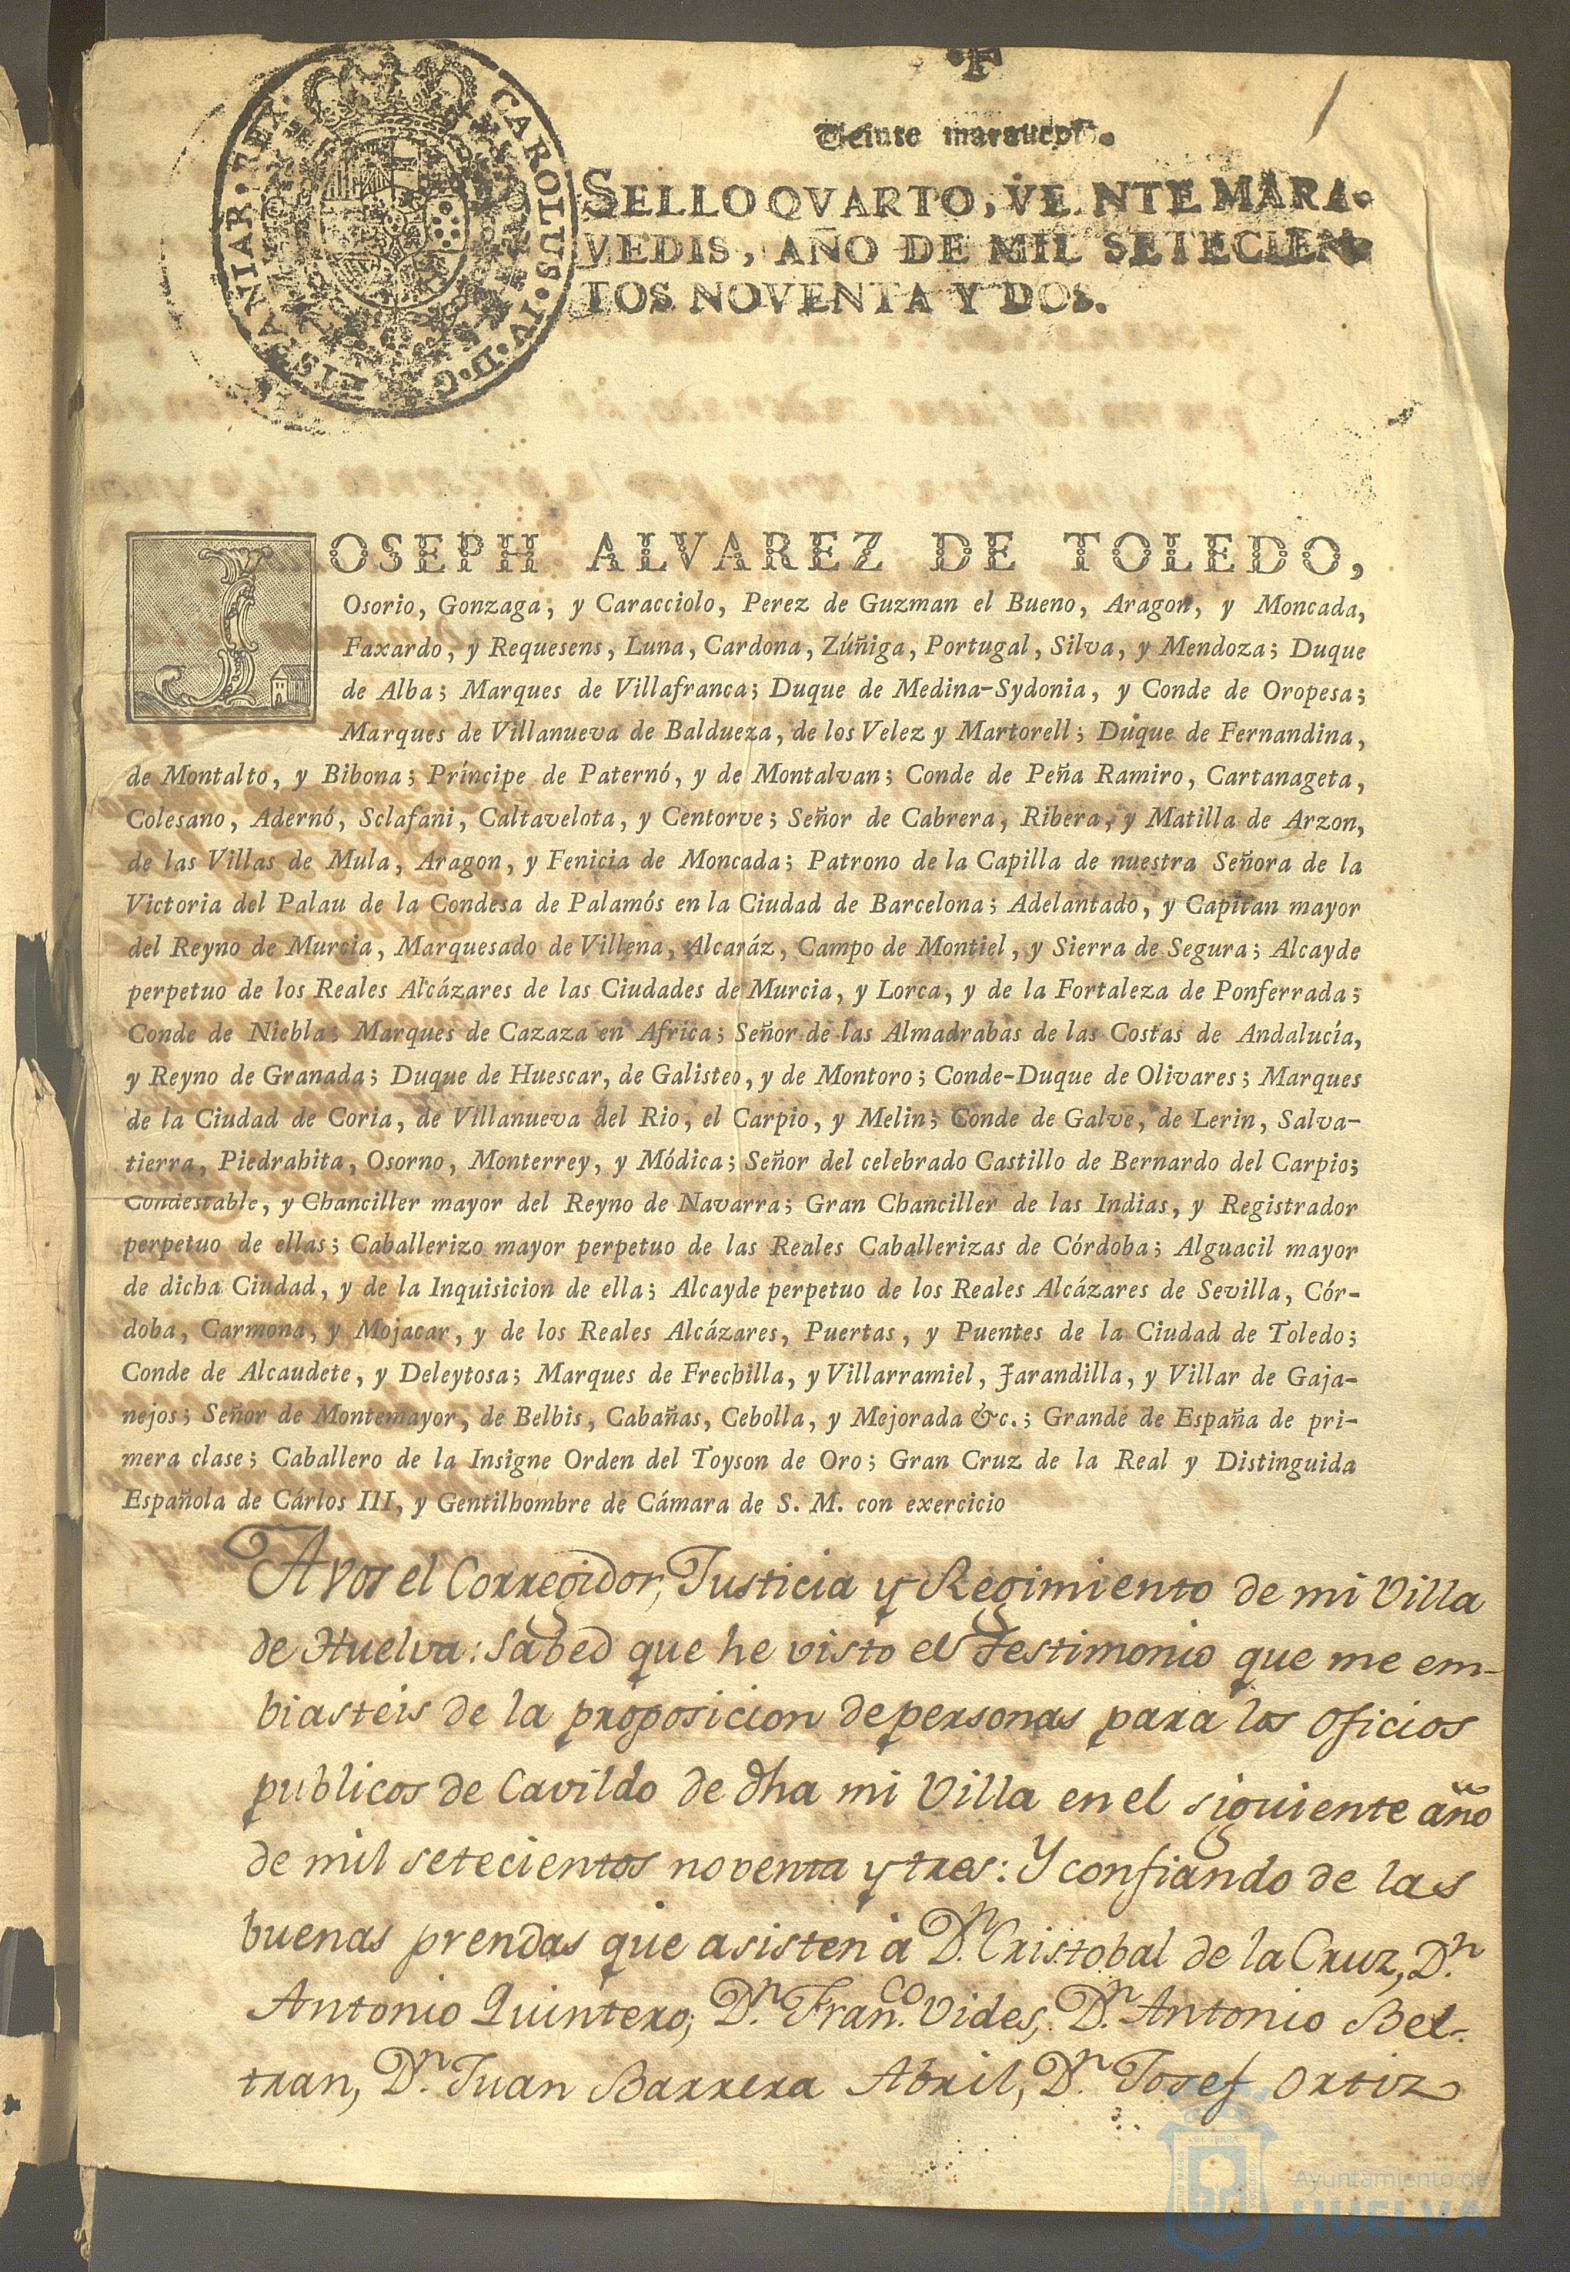 CAROLUS·IV·D·G·HISPANIAR·REX·
Veinte marauedis.
SELLO QVARTO, VEINTE MARA-
VEDIS, AÑO DE MIL SETECIEN-
TOS NOVENTA Y DOS.
JOSEPH ALVAREZ DE TOLEDO,
Osorio, Gonzaga, y Caracciolo, Perez de Guzman el Bueno, Aragon, y Moncada,
Faxardo, y Requesens, Luna, Cardona, Zúñiga, Portugal, Silva, y Mendoza; Duque
de Alba; Marques de Villafranca; Duque de Medina-Sydonia, y Conde de Oropesa;
Marques de Villanueva de Baldueza, de los Velez y Martorell; Duque de Fernandina,
de Montalto, y Bibona; Príncipe de Paternó, y de Montalvan; Conde de Peña Ramiro, Cartanageta,
Colesano, Adernó, Sclafani, Caltavelota, y Centorve; Señor de Cabrera, Ribera, y Matilla de Arzon,
de las Villas de Mula, Aragon, y Fenicia de Moncada; Patrono de la Capilla de nuestra Señora de la
Victoria del Palau de la Condesa de Palamós en la Ciudad de Barcelona; Adelantado, y Capitan mayor
del Reyno de Murcia, Marquesado de Villena, Alcaráz, Campo de Montiel, y Sierra de Segura; Alcayde
perpetuo de los Reales Alcázares de las Ciudades de Murcia, y Lorca, y de la Fortaleza de Ponferrada;
Conde de Niebla; Marques de Cazaza en Africa; Señor de las Almadrabas de las Costas de Andalucía,
y Reyno de Granada; Duque de Huescar, de Galisteo, y de Montoro; Conde-Duque de Olivares; Marques
de la Ciudad de Coria, de Villanueva del Rio, el Carpio, y Melin; Conde de Galve, de Lerin, Salva-
tierra, Piedrahita, Osorno, Monterrey, y Módica; Señor del celebrado Castillo de Bernardo del Carpio;
Condestable, y Chanciller mayor del Reyno de Navarra; Gran Chanciller de las Indias, y Registrador
perpetuo de ellas; Caballerizo mayor perpetuo de las Reales Caballerizas de Córdoba; Alguacil mayor
de dicha Ciudad, y de la Inquisicion de ella; Alcayde perpetuo de los Reales Alcázares de Sevilla, Cór-
doba, Carmona, y Mojacar, y de los Reales Alcázares, Puertas, y Puentes de la Ciudad de Toledo;
Conde de Alcaudete, y Deleytosa; Marques de Frechilla, y Villarramiel, Jarandilla, y Villar de Gaja-
nejos; Señor de Montemayor, de Belbis, Cabañas, Cebolla, y Mejorada &c.; Grande de España de pri-
mera clase; Caballero de la Insigne Orden del Toyson de Oro; Gran Cruz de la Real y Distinguida
Española de Cárlos III, y Gentilhombre de Cámara de S. M. con exercicio
A vos el Corregidor, Justicia y Regimiento de mi Villa
de Huelva: Sabed que he visto el Testimonio que me em-
biasteis de la proposicion de personas para los oficios
publicos de Cavildo de dha mi Villa en el siguiente año
de mil setecientos noventa y tres: Y confiando de las
buenas prendas que asisten a Dn. Cristobal de la Cruz, Dn.
Antonio Quintero, Dn. Franco. Vides, Dn. Antonio Bel-
tran, Dn. Juan Barrera Abril, Dn. Josef Ortiz
Ayuntamiento de
HUELVA